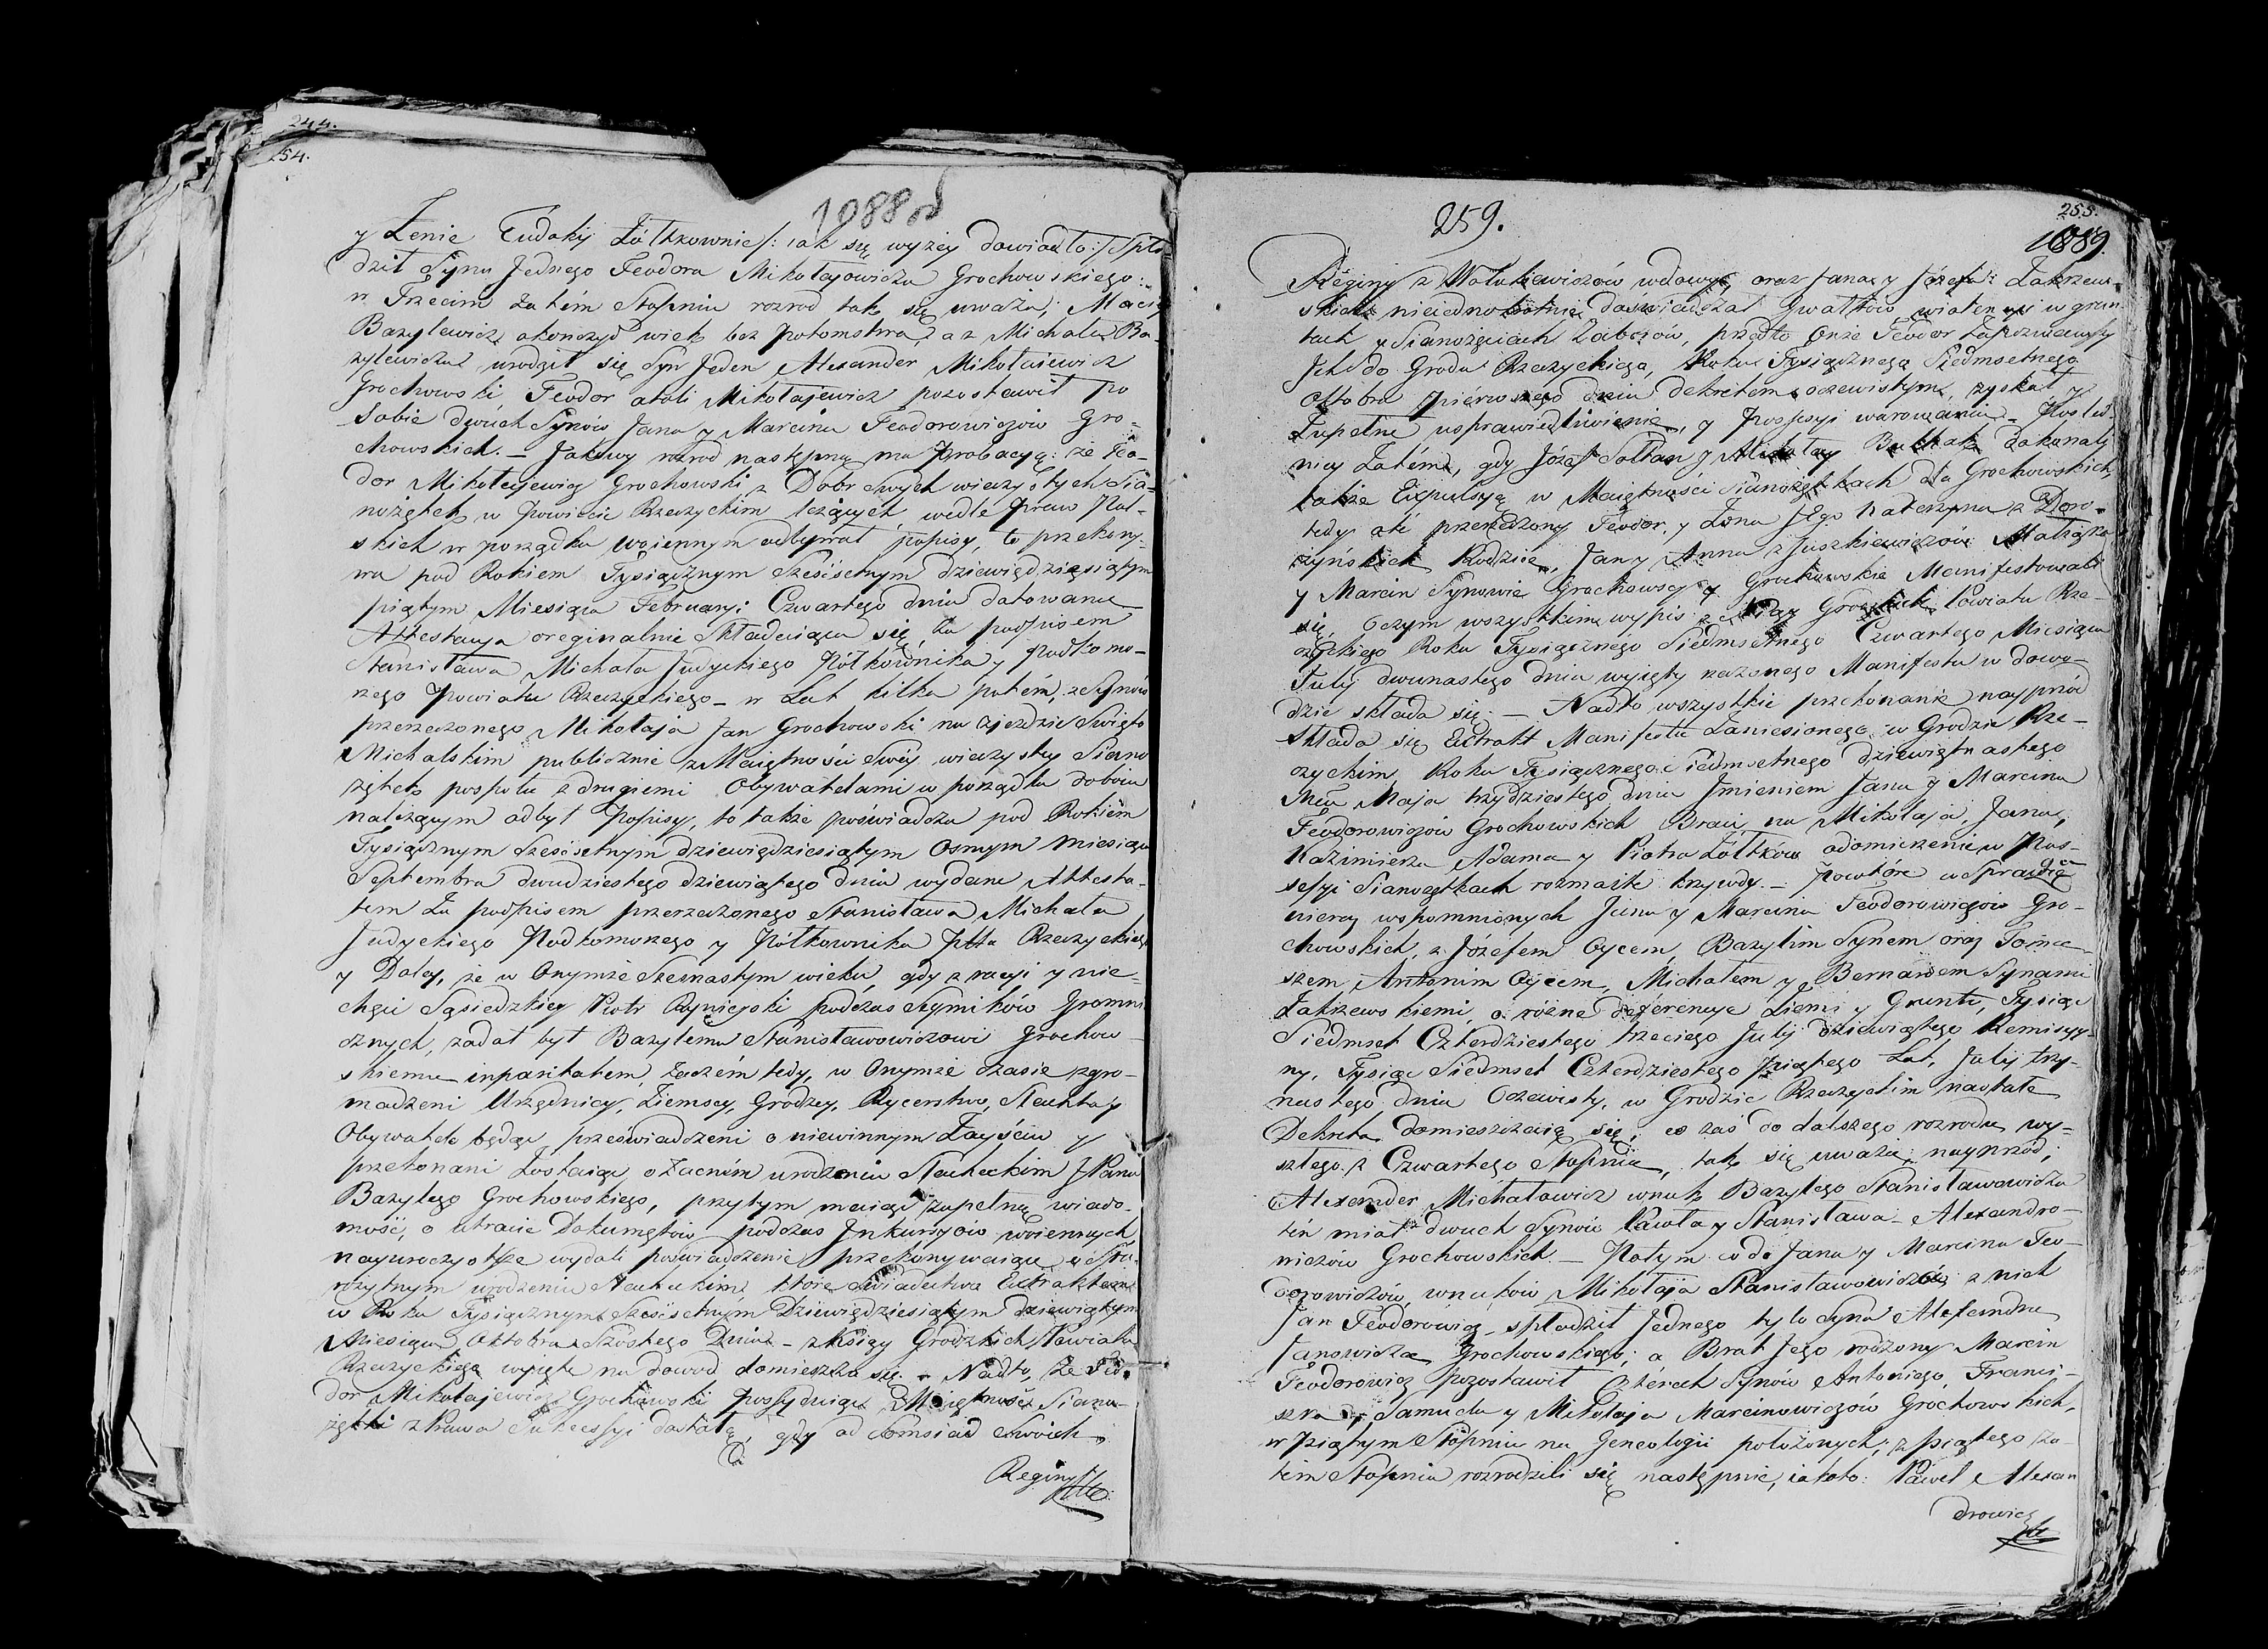 244.
254.
1088 od
y Żenie Eudokij Żółtkownie /: iak się wyżey dowiodło :/ Spło-
dził Syna Jednego Feodora Mikołajowicza Grochowskiego:
w Trzecim zatém Stopniu rozrod tak się uważa; Maciey
Bazylewicz okończył wiek bez potomstwa, a z Michała Ba-
zylewicza urodził się Syn Jeden Alexander Mikołaiewicz
Grochowski Feodor atoli Mikołajewicz pozostawił po
Sobie dwóch Synów Jana y Marcina Feodorowiczów Gro-
chowskich. — Jakowy rozrod następną ma Probacyą: że Feo-
dor Mikołajewicz Grochowski z Dobr Swych wieczystych Sia-
nożętek w Powiecie Rzeczyckim leżących wedle Praw Pol-
skich w porządku woiennym odbywał popisy, to przekony-
wa pod Rokiem Tysiącznym Sześćsetnym dziewiędziesiątym
piątym Miesiąca February Czwartego dnia datowana
Attestacya oreginalnie Składaiąca się, za podpisem
Stanisława Michała Judyckiego Półkownika y Podkomo-
rzego Powiatu Rzeczyckiego — w Lat kilka potém, z Synów
przerzeczonego Mikołaja Jan Grochowski na zjezdzie Święto
Michalskim publicznie z Maiętności Swéy wieczystey Siano
żętek pospołu z drugiemi Obywatelami w porządku do boiu
należącym odbył Popisy, to także poświadcza pod Rokiem
Tysiącznym Sześćsetnym dziewiędziesiątym Osmym miesiąca
Septembra dwudziestego dziewiątego dnia wydane Attesta-
tem za podpisem przerzeczonego Stanisława Michała
Judyckiego Podkomorzego y Półkownika Pttu Rzeczyckiego
y Daley, że w Onymże Szesnastym wieku, gdy z racyi y nie-
chęci Sąsiedzkiey Piotr podczas Seymików Gromni
cznych, zadał był Bazylemu Stanisławowiczowi Grochow-
skiemu inparitatem, zaczém tedy, w Onymże czasie zgro-
madzeni Urzędnicy, Ziemscy, Grodzcy, Rycerstwo, Szlachta y
Obywatele będąc przeświadczeni o niewinnym Zayściu y
przekonani zostaiąc o zacném urodzeniu Szlacheckim JPana
Bazylego Grochowskiego, przytym maiąc zupełną wiado-
mość, o utracie Dokumętów podczas Jnkursyów woiennych,
nayuroczystsze wydali poświadczenie przekonywaiące o Sta-
rożytnym urodzeniu Szlacheckim, które świadectwo Extraktem
w Roku Tysiącznym Sześćsetnym Dziewiędziesiątym dziewiątym
Miesiąca Oktobra Szóstego Dnia — z Xsiąg Grodzkich Powiatu
Rzeczyckiego wyięte na dowod domieszcza się. — Nadto, że Feo-
dor Mikołajewicz Grochowski possyduiąc Maiętność Siano-
żętki z Prawa Sukcessyi dostałą, gdy od Somsiad Swoich
Reginy
259.
255.
1089.
Reginy z Wołukiewiczów wdowy, oraz Jana y Józefa Zakrzew-
skich nieiednokrotnie doświadczał Gwałtów wiolencyi w grun
tach y Sianożęciach Zaborów, przeto Onże Feodor Zapozwawszy
Jch do Grodu Rzeczyckiego, Roku Tysiącznego Siedmsetnego
Oktobra pierwszego dnia dekretem oczewistym, zyskał y
Zupełne usprawiedliwienie, y Possesyi warowanie. — Poźniey
niey Zatém, gdy Józef Sołtan y Mikołay Bułhak dokonali
także Expulsyą w Maiętności Sianożętkach dla Grochowskich,
tedy ciż przerzeczony Feodor, y Żona Jego Katerzyna z Doro-
szyńskich Rodzice, Jan y Anna z Juszkiewiczów Małżonk
y Marcin Synowie Grochowscy y Grochowskie Manifestowali
się, oczym wszystkim wypis z Xiąg Grodzkich Powiatu Rze-
czyckiego Roku Tysiącznego Siedmsetnego Czwartego Miesiąca
July dwunastego dnia wyięty rzeczonego Manifestu w dowo-
dzie składa się. — Nadto wszystkie przekonanie nayprzód
Składa się Extrakt Manifestu Zaniesionego w Grodzie Rze-
czyckim Roku Tysiącznego Siedmsetnego dziewiętnastego
Mca Maja trzydziestego dnia Jmieniem Jana y Marcina
Feodorowiczów Grochowskich Braci, na Mikołaja, Jana,
Kazimierza Adama y Piotra Żółtków o domierzenie w Pos-
sesyi Sianożętkach rozmaite krzywdy. — Powtóre w Sprawie
nieraz wspomnionych Jana y Marcina Feodorowiczów Gro-
chowskich, z Józefem Oycem, Bazylim Synem oraz Toma-
szem, Antonim Oycem, Michałem y Bernardem Synami
Zakrzewskiemi, o różne diferencye Ziemi y Gruntu, Tysiąc
Siedmset Czterdziestego trzeciego July dziewiątego Remissyy-
ny, Tysiąc Siedmset Czterdziestego Piątego Lat, July trzy-
nastego dnia Oczewisty, w Grodzie Rzeczyckim nastałe
Dekreta domieszczaią się; co zaś do dalszego rozrodu wy-
szłego z Czwartego Stopnia, tak się uważa: nayprzód,
Alexander Michałowicz wnuk Bazylego Stanisławowicza
ten miał dwuch Synów Pawła y Stanisława Alexandro-
wiczów Grochowskich. — Potym co do Jana y Marcina Feo-
dorowiczów, wnuków Mikołaja Stanisławowiczów; z nich
Jan Feodorowicz, spłodził Jednego tylo Syna Alexandra
Janowicza Grochowskiego; a Brat Jego rodzony Marcin
Feodorowicz pozostawił Czterech Synów Antoniego, Franci-
szka, Samuela y Mikołaja Marcinowiczów Grochowskich,
w Piątym Stopniu na Geneologii położonych; z piątego Za-
tem Stopnia rozrodzili się następnie, iakoto: Paweł Alexan
drowicz